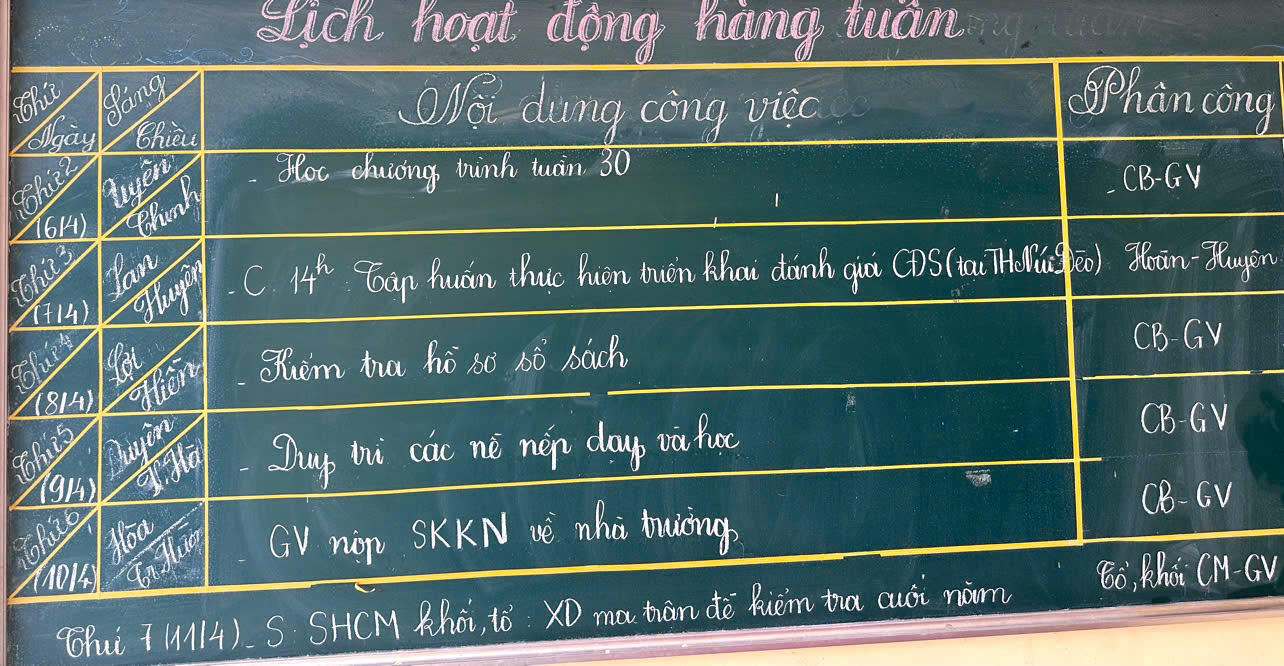 Lịch hoạt động hàng tuần
Thứ Ngày Sáng Chiều Nội dung công việc Phân công
Thứ 2 (6/4) Quyên Chinh - Học chương trình tuần 30 - CB-GV
Thứ 3 (7/4) Lan Huyên - C 14h Tập huấn thực hiện triển khai đánh giá CĐS (tại TH Núi Đèo) Hoãn-Huyên
Thứ 4 (8/4) Lợi Hiên - Kiểm tra hồ sơ sổ sách CB-GV
Thứ 5 (9/4) Duyên P. Hà - Duy trì các nề nếp dạy và học CB-GV
Thứ 6 (10/4) Hòa - GV nộp SKKN về nhà trường CB-GV
Thứ 7 (11/4) - S: SHCM khối, tổ: XD ma trận đề kiểm tra cuối năm Tổ, khối CM-GV